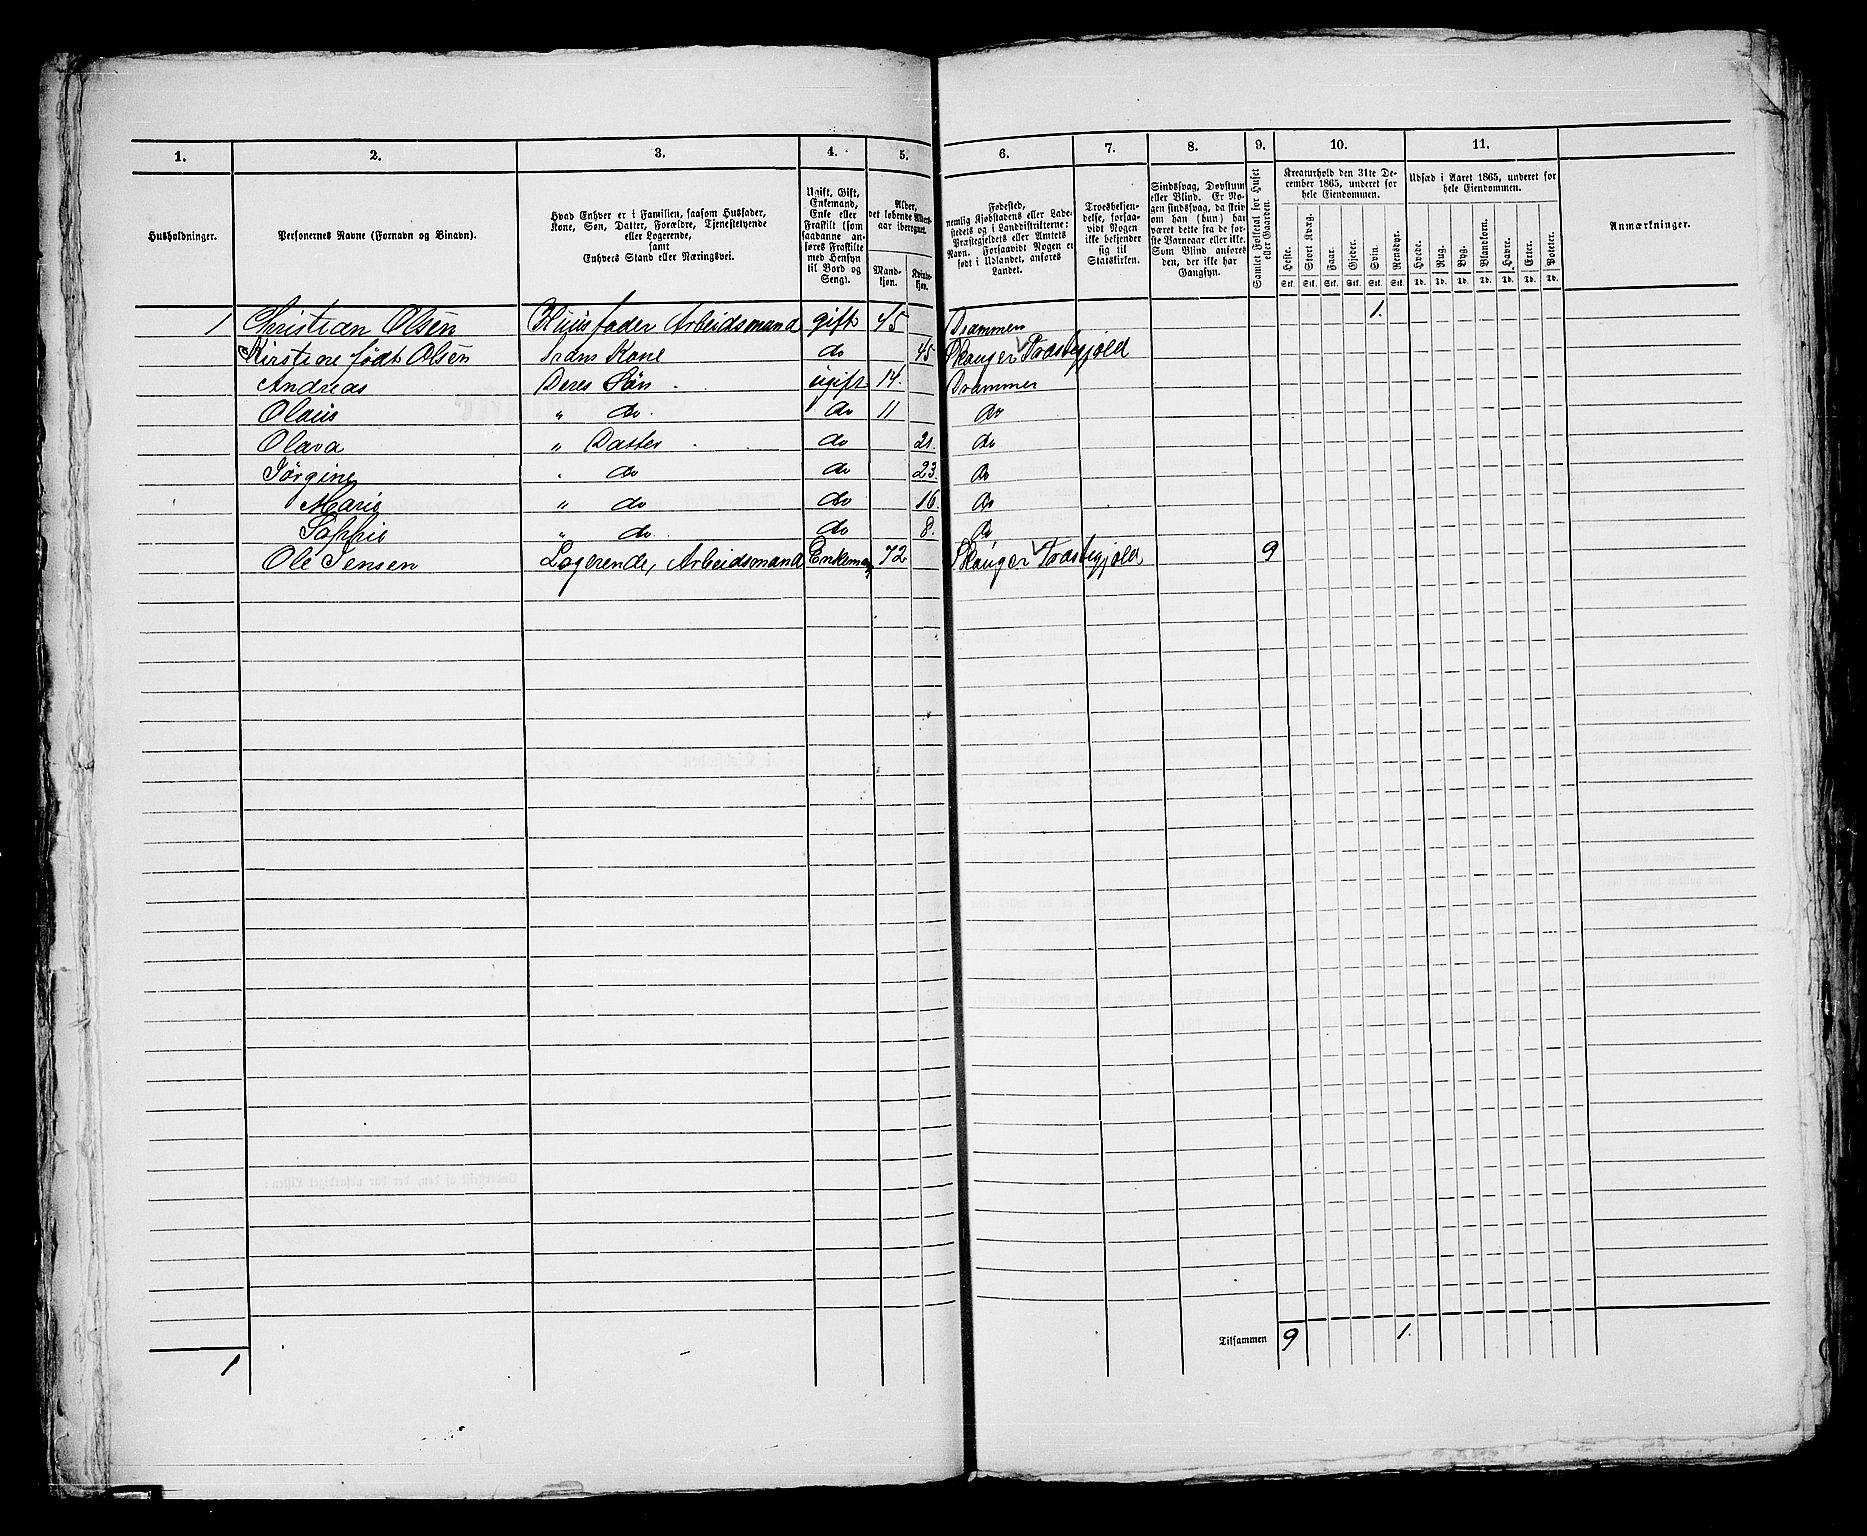 1. 2. 3. 4. 5. 6. 7. 8. 9. 10. 11.
Husholdninger.
Personernes Navne (Fornavn og Binavn).
Hvad Enhver er i Familien, saasom Husfader,
Kone, Søn, Datter, Forældre, Tjenestetyende
eller Logerende,
samt
Enhvers Stand eller Næringsvei.
Ugift, Gift,
Enkemand,
Enke eller
Fraskilt (som
saadanne an-
føres Fraskilte
med Hensyn
til Bord og
Seng).
Alder,
det løbende Alders-
aar iberegnet.
Mand-
kjøn.
Kvinde-
kjøn.
Fødested,
nemlig Kjøbstadens eller Lade-
stedets og i Landdistrikterne:
Præstegjeldets eller Amtets
Navn. Forsaavidt Nogen er
født i Udlandet, anføres
Landet.
Troesbekjen-
delse, forsaa-
vidt Nogen
ikke bekjender
sig til
Statskirken.
Sindssvag, Døvstum
eller Blind. Er No-
gen sindssvag, da skriv
om han (hun) har
været dette fra de før-
ste Barneaar eller ikke.
Som Blind anføres
den, der ikke har
Gangsyn.
Samlet Folketal for Huset
eller Gaarden.
Kreaturhold den 31te De-
cember 1865, underet for
hele Eiendommen.
Heste. Stort Kvæg. Faar. Gjeder. Sviin. Rensdyr.
Stk. Stk. Stk. Stk. Stk. Stk.
Udsæd i Aaret 1865, underet for
hele Eiendommen.
Hvede. Rug. Byg. Blandkorn. Havre. Erter. Poteter.
Td. Td. Td. Td. Td. Td. Td.
Anmærkninger.
1 Christian Olsen Huusfader Arbeidsmand gift 45 Drammen 1.
Kirstine født Olsen Hans Kone do 45 Skauger Præstegjeld
Andreas Deres Søn ugift 14. Drammen
Olaus " do. do 11 do
Olava " Datter do 21. do
Jørgine " do do 23. do
Marie " do do 16. do
Sophie " do. do 8. do
Ole Jensen Logerende, Arbeidsmand Enkemand 72 Skauger Præstegjeld 9
Tilsammen 9 1.
1